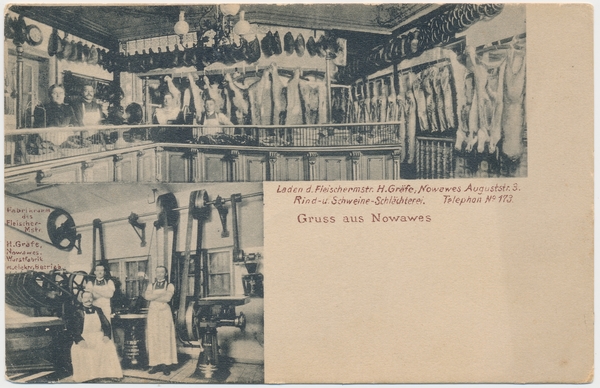 Laden d. Fleischermstr. H. Gräfe, Nowawes Auguststr. 3.
Rind- u. Schweine-Schlächterei. Telephon No 173.
Gruss aus Nowawes
Fabrikraum
des
Fleischer-
Mstr.
H. Gräfe,
Nowawes.
Wurstfabrik
m. elektr. Betrieb